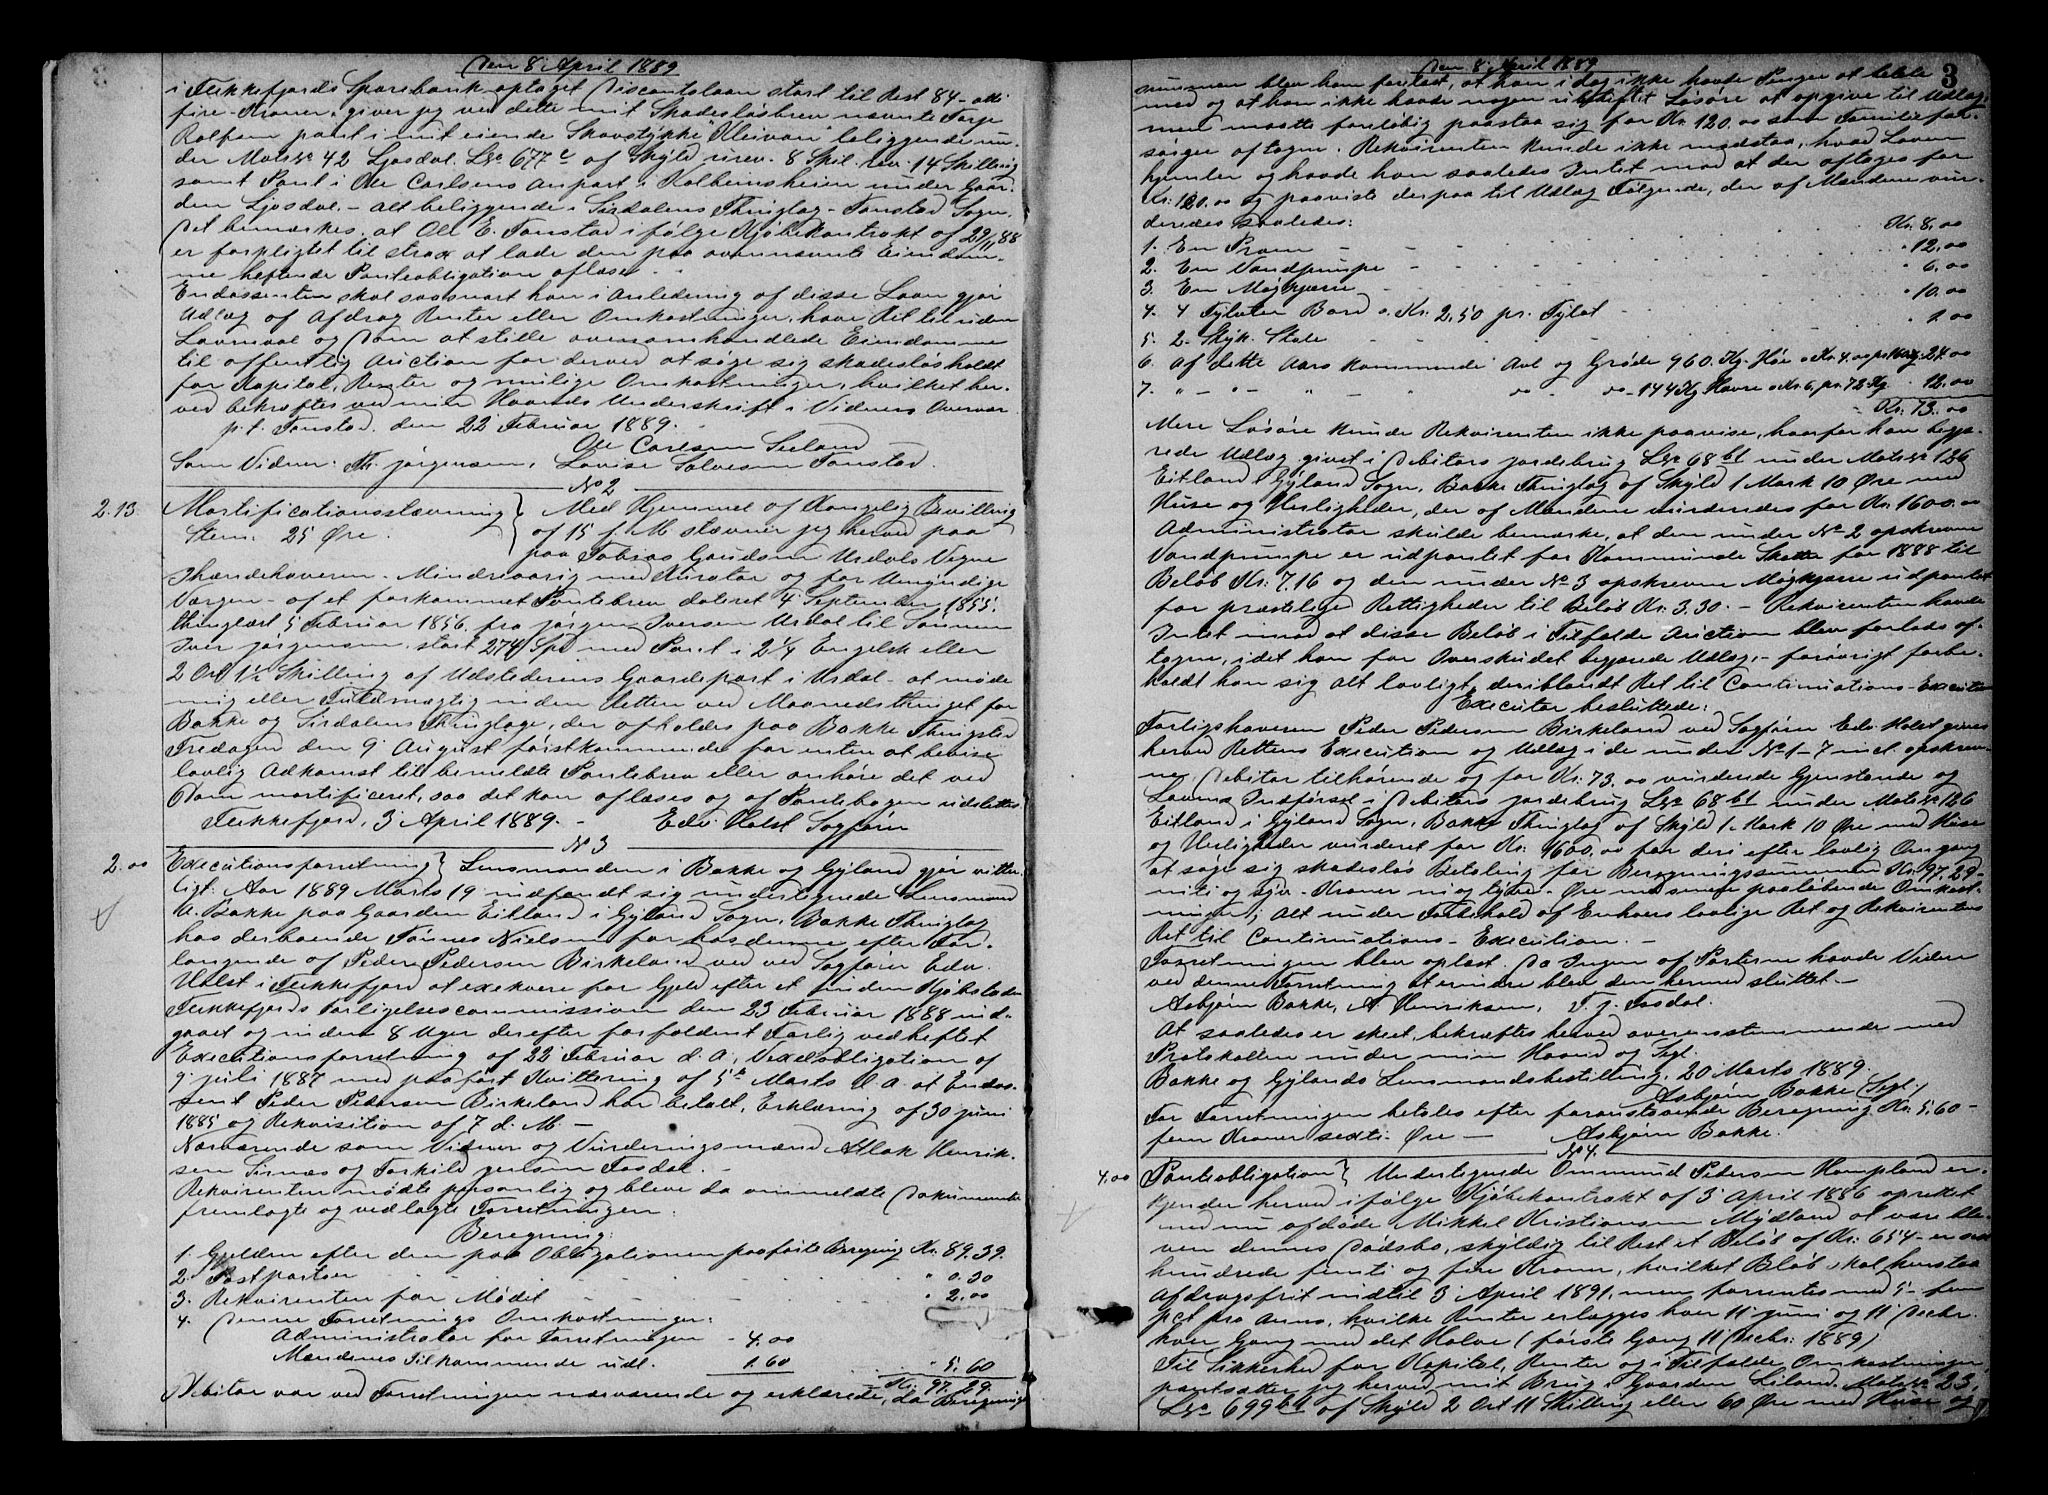 Den 8. April 1889
i Flekkefjords Sparebank optaget Discontolaan stort til Rest 84 - otti
fire - Kroner, giver jeg ved dette mit Skadesløsbrev nævnte Tarje
pant i mit eiende Skovstykke "Oleivan" beliggende un-
der Mats No 42 Ljosdal. LNo 677c af Skyld urev. 8 Skil. rev. 14 Skilling
samt Pant i Ole Carlsens anpart i Kolbeinsheien under Gaar-
den Ljosdal. - alt beliggende i Sirdalens Thinglag - Tonstad Sogn.
Det bemærkes, at Ole E. Tonstad ifølge Kjøbekontrakt af 29/11 88
er forpligtet til strax at lade den paa ovennævnte Eiendom-
me heftende Panteobligation aflæse.
Endossenten skal saasnart han i Anledning af disse Laan gjør
Udlæg af Afdrag Renter eller Omkostninger, have Ret til uden
Lovmaal og Dom at stille ovenomhandlede Eiendomme
til offentlig Auction for derved at søge sig skadesløsholdt
for Kapital, Renter og mulige Omkostninger, hvilket her-
ved bekræftes ved min Haands Underskrift i Vidners Overvær
p.t. Tonstad, den 22 Februar 1889.
Ole Carlsen Seland
Som Vidner: Th. Jørgensen, Lovise Salvesen Tonstad.
No 2
2.13. Mortificationsstævning } Med Hjemmel af Kongelig Bevilling
Stem: 25 Øre. af 15 f. M. stævner jeg herved paa
paa Tobias Gaudsen Urdals Vegne
Ihændehaveren - Mindreaarig med Kurator og for Umyndige
Værgen - af et forkommet Pantebrev dateret 4 September 1855.
thinglæst 5 Februar 1856 fra Jørgen Iversen Urdal til Sønnen
Iver Jørgensen, stort 274 Spd med Pant i 2 1/4 Engelsk eller
2 Ort 1 1/2 Skilling af Udstederens Gaardepart i Urdal - at møde
mig eller Fuldmægtig inden Retten ved Maanedsthinget for
Bakke og Sirdalens Thinglage, der afholdes paa Bakke Thingsted
Fredagen den 9 August førstkommende for enten at bevise
lovlig Adkomst til bemeldte Pantebrev eller anhøre det ved
Dom mortificeret, saa det kan aflæses og af Pantebogen udslettes
Flekkefjord, 3 April 1889. - Edv. Holst Sagfører
No 3
2.00 Executionsforretning } Lensmanden i Bakke og Gyland gjør vitter-
ligt: Aar 1889 Marts 19 indfandt sig undertegnede Lensmand
A. Bakke paa Gaarden Eitland i Gyland Sogn, Bakke Thinglag
hos derboende Tønnes Nielsen for hos denne efter For-
langende af Peder Pedersen Birkeland ved ved Sagfører Edv.
Holst i Flekkefjord at exekvere for Gjæld efter et inden Kjøbstaden
Flekkefjords Forligelsescommission den 23 Februar 1888 ind-
gaaet og inden 8 Uger derefter forfaldent Forlig vedheftet
Executionsforretning af 22 Februar d. A., Vexelobligation af
9 juli 1887 med paaført Kvittering af 5te Marts d. A. at Endos-
sent Peder Pedersen Birkeland har betalt, Erklæring af 30 juni
1885 og Rekvisition af 7 d. M. -
Nærværende som Vidner og Vurderingsmænd Atlak Henrik-
sen Sirnæs og Torkild Jensen Fosdal. -
Rekvirenten mødte personlig og bleve da ommeldte Dokumenter
fremlagte og vedlagte Forretningen:
Beregning:
1. Gjælden efter den paa Obligationen paaførte Beregning Kr. 89.39.
2. Postportoer " 0.30
3. Rekvirenten for Mødet " 2.00
4. Denne Forretnings Omkostninger:
Administrator for Forretningen - 4.00
Mændenes Tilkommende udl. 1.60 " 5.60
Kr. 97.29.
Debitor var ved Forretningen nærværende og erklærede, da Beregnings-
Den 8. April 1889
3
summen blev ham forelæst, at han i dag ikke havde Penge at betale
med og at han ikke havde nogen ubeheftet Løsøre at opgive til Udlæg,
men maatte foreløbig paastaa sig for Kr. 120.00 som Familiefor-
sørger aftagen. Rekvirenten kunde ikke modstaa, hvad Loven
hjemler og havde han saaledes Intet mod at der aftages for
Kr. 120.00 og paaviste derpaa til Udlæg Følgende, der af Mændene vur-
deredes saaledes:
1. En Pram Kr. 8.00
2. En Vandpumpe " 12.00
3. En Møgkjærre " 6.00
4. 4 Tylvter Bord a Kr. 2.50 pr. Tylvt " 10.00
5. 2. Styk. Stole " 1.00
6. Af dette Aars kommende Avl og Grøde 960. Kg. Høe a Kr. 4.00 " 24.00
7. " - " - " - 144 Kg Havre a Kr. 6. pr. 72 Kg. " 12.00
Kr. 73.00
Mere Løsøre kunde Rekvirenten ikke paavise, hvorfor han begjæ-
rede Udlæg givet i Debitors Jordebrug LNo 68 b1 under Mats No 126
Eitland i Gyland Sogn, Bakke Thinglag af Skyld 1 Mark 10 Øre med
Huse og Herligheder, der af Mændene vurderedes for Kr. 1600.00
Administrator skulde bemærke, at den under No 2 opskrevne
Vandpumpe er udpantet for Kommunde Skatte for 1888 til
Beløb Kr. 7.16 og den under No 3 opskrevne Møgkjærre udpantet
for præstelige Rettigheder til Beløb Kr. 3.30. - Rekvirenten havde
Intet imod at disse Beløb i Tilfælde Auction blev forlods af-
tagne, idet han for Overskudet begjærede Udlæg, - forøvrigt forbe-
holdt han sig alt lovligt, deriblandt Ret til Continuations-Execution
Executor besluttede:
Forligshaveren Peder Pedersen Birkeland ved Sagfører Edv. Holst gives
herved Rettens Execution og Udlæg i de under No 1-7 incl. opskrev-
ne, Debitor tilhørende og for Kr. 73.00 vurderede Gjenstande og
Lovens Indførsel i Debitors Jordebrug LNo 68 b1 under Mats No 126
Eitland i Gyland Sogn, Bakke Thinglag af Skyld 1 Mark 10 Øre med Huse
og Herligheder vurderet for Kr. 1600.00 for deri efter lovlig Omgang
at søge sig skadesløs Betaling for Beregningssummen Kr. 97.29 -
niti og syv - Kroner ni og tyve - Øre med senere paaløbende Omkost-
ninger; alt under Forbehold af Enhvers lovlige Ret og Rekvirentens
Ret til Continuations - Execution. -
Forretningen blev oplæst. Da Ingen af Parterne havde Videre
ved denne Forretning at erindre blev den hermed sluttet. -
Asbjørn Bakke, A Henriksen, T. J. Fosdal.
At saaledes er skeet, bekræftes herved overensstemmende med
Protokollen under min Haand og Segl.
Bakke og Gylands Lensmandsbestilling, 20 Marts 1889.
Asbjørn Bakke (Segl.)
For Forretningen betales efter foranstaaende Beregning Kr. 5.60 -
fem Kroner sexti - Øre - Asbjørn Bakke.
No 4.
4.00 Panteobligation } Undertegnede Ommund Pedersen Hompland er-
kjender herved ifølge Kjøbekontrakt af 3 April 1886 oprettet
med nu afdøde Mikkel Kristiansen Mydland at være ble-
ven dennes Dødsbo, skyldig til Rest et Beløb af Kr. 654 - er sex
hundrede femti og fire Kroner, hvilket Beløb skal henstaa
Afdragsfrit indtil 3 April 1891, men forrentes med 5 - fem
pct pro Anno, hvilke Renter erlægges hver 11 juni og 11 Decbr.
hver Gang med det Halve (første Gang 11 Decbr. 1889)
Til Sikkerhed for Kapital, Renter og i Tilfælde Omkostninger
pantsætter jeg herved mit Brug i Gaarden Liland. Mats No 23,
LNo 699 b1 af Skyld 2 Ort 11 Skilling eller 60 Øre med Huse og